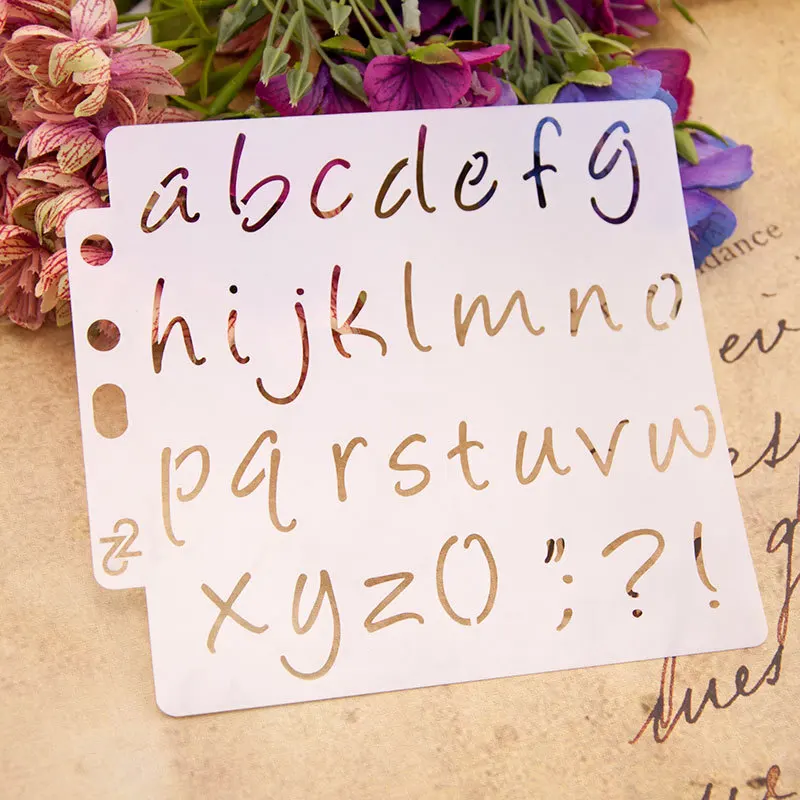 abcdefg
hijklmno
pqrstuvw
xyz()";?!
22
dance